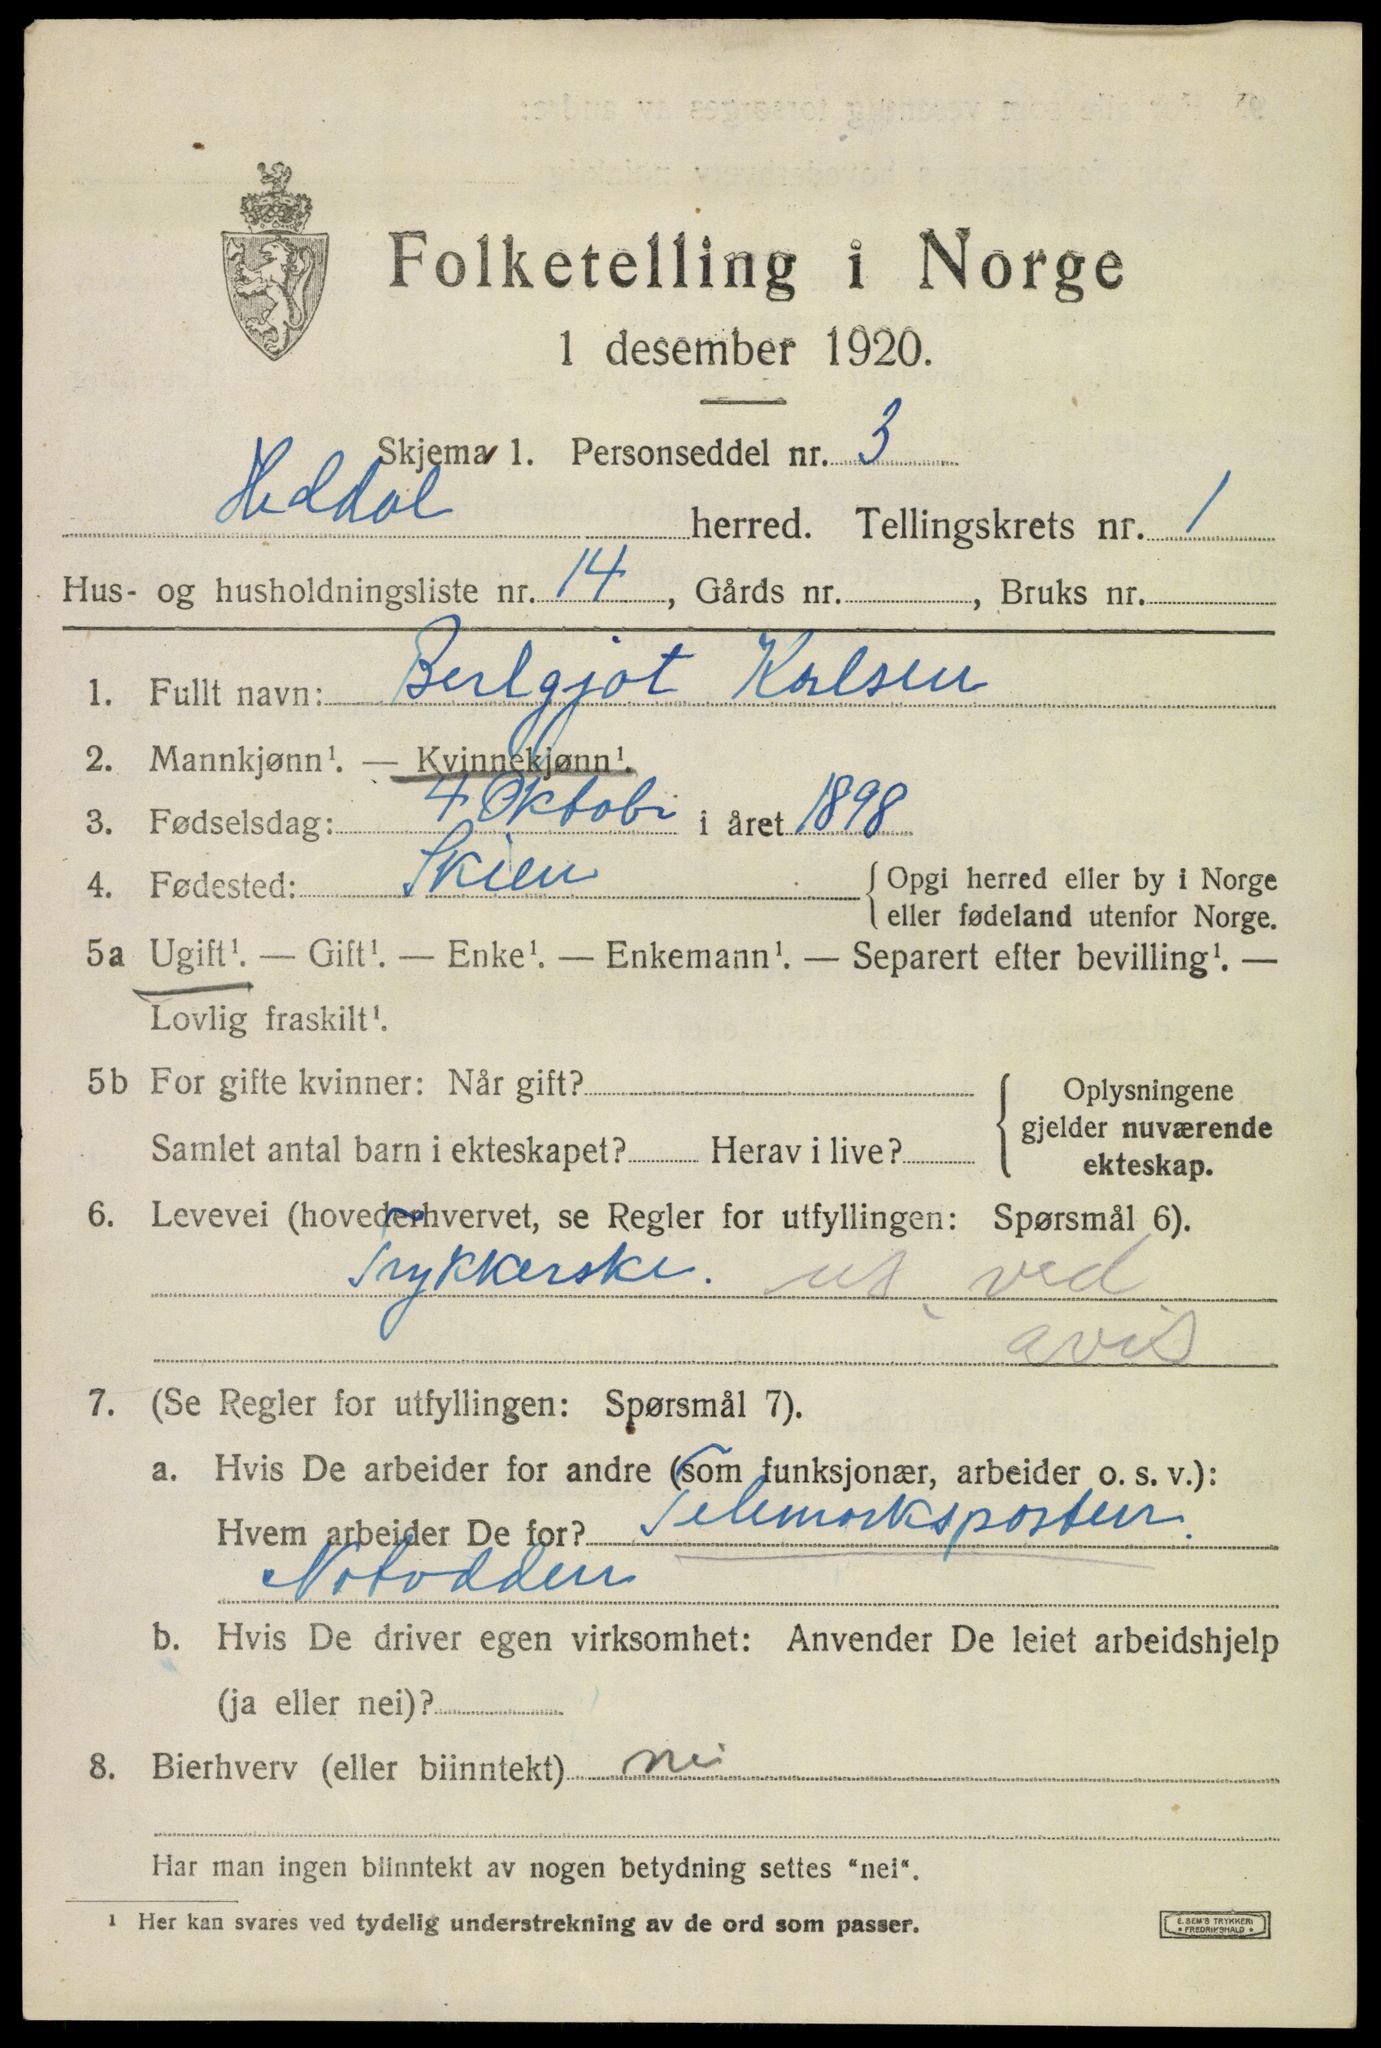 Folketelling i Norge
1 desember 1920.
Skjema 1. Personseddel nr. 3
Heddal herred. Tellingskrets nr. 1
Hus- og husholdningsliste nr. 14, Gårds nr. , Bruks nr.
1. Fullt navn: Berlgjot Karlsen
2. Mannkjønn¹. — Kvinnekjønn¹.
3. Fødselsdag: 4 Oktobr i året 1898
4. Fødested: Skien { Opgi herred eller by i Norge
eller fødeland utenfor Norge.
5a Ugift¹. — Gift¹. — Enke¹. — Enkemann¹. — Separert efter bevilling¹. —
Lovlig fraskilt¹.
5b For gifte kvinner: Når gift? { Oplysningene
gjelder nuværende
Samlet antal barn i ekteskapet? Herav i live?
ekteskap.
6. Levevei (hovederhvervet, se Regler for utfyllingen: Spørsmål 6).
Trykkerske. ved
avis
7. (Se Regler for utfyllingen: Spørsmål 7).
a. Hvis De arbeider for andre (som funksjonær, arbeider o. s. v.):
Hvem arbeider De for? Telemarksposten.
Notodden
b. Hvis De driver egen virksomhet: Anvender De leiet arbeidshjelp
(ja eller nei)?
8. Bierhverv (eller biinntekt) nei
Har man ingen biinntekt av nogen betydning settes "nei".
¹ Her kan svares ved tydelig understrekning av de ord som passer.
E. SEM'S TRYKKERI
FREDRIKSHALD